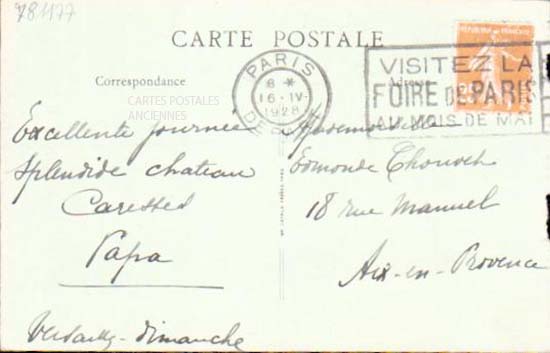 78477
CARTE POSTALE
RÉPUBLIQUE FRANÇAISE
PARIS
8 *
16 · IV ·
1928
DEPART
VISITEZ LA
FOIRE DE PARIS
AU MOIS DE MAI
Correspondance
Adresse
CARTES POSTALES
ANCIENNES
Excellente journée
splendide chateau
Caresses
Papa
Versailles - dimanche
Mademoiselle
Edmonde
18 rue Manuel
Aix-en-Provence